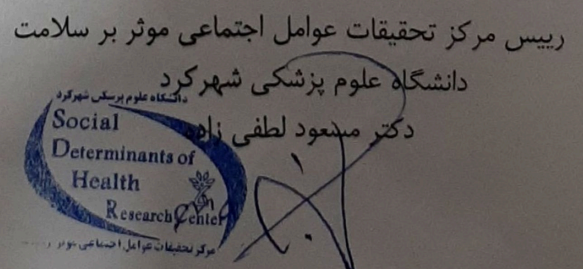 رییس مرکز تحقیقات عوامل اجتماعی موثر بر سلامت
دانشگاه علوم پزشکی شهرکرد
دکتر مسعود لطفی زاده
دانشگاه علوم پزشکی شهرکرد
Social
Determinants of
Health
Research Center
مرکز تحقیقات عوامل اجتماعی موثر بر